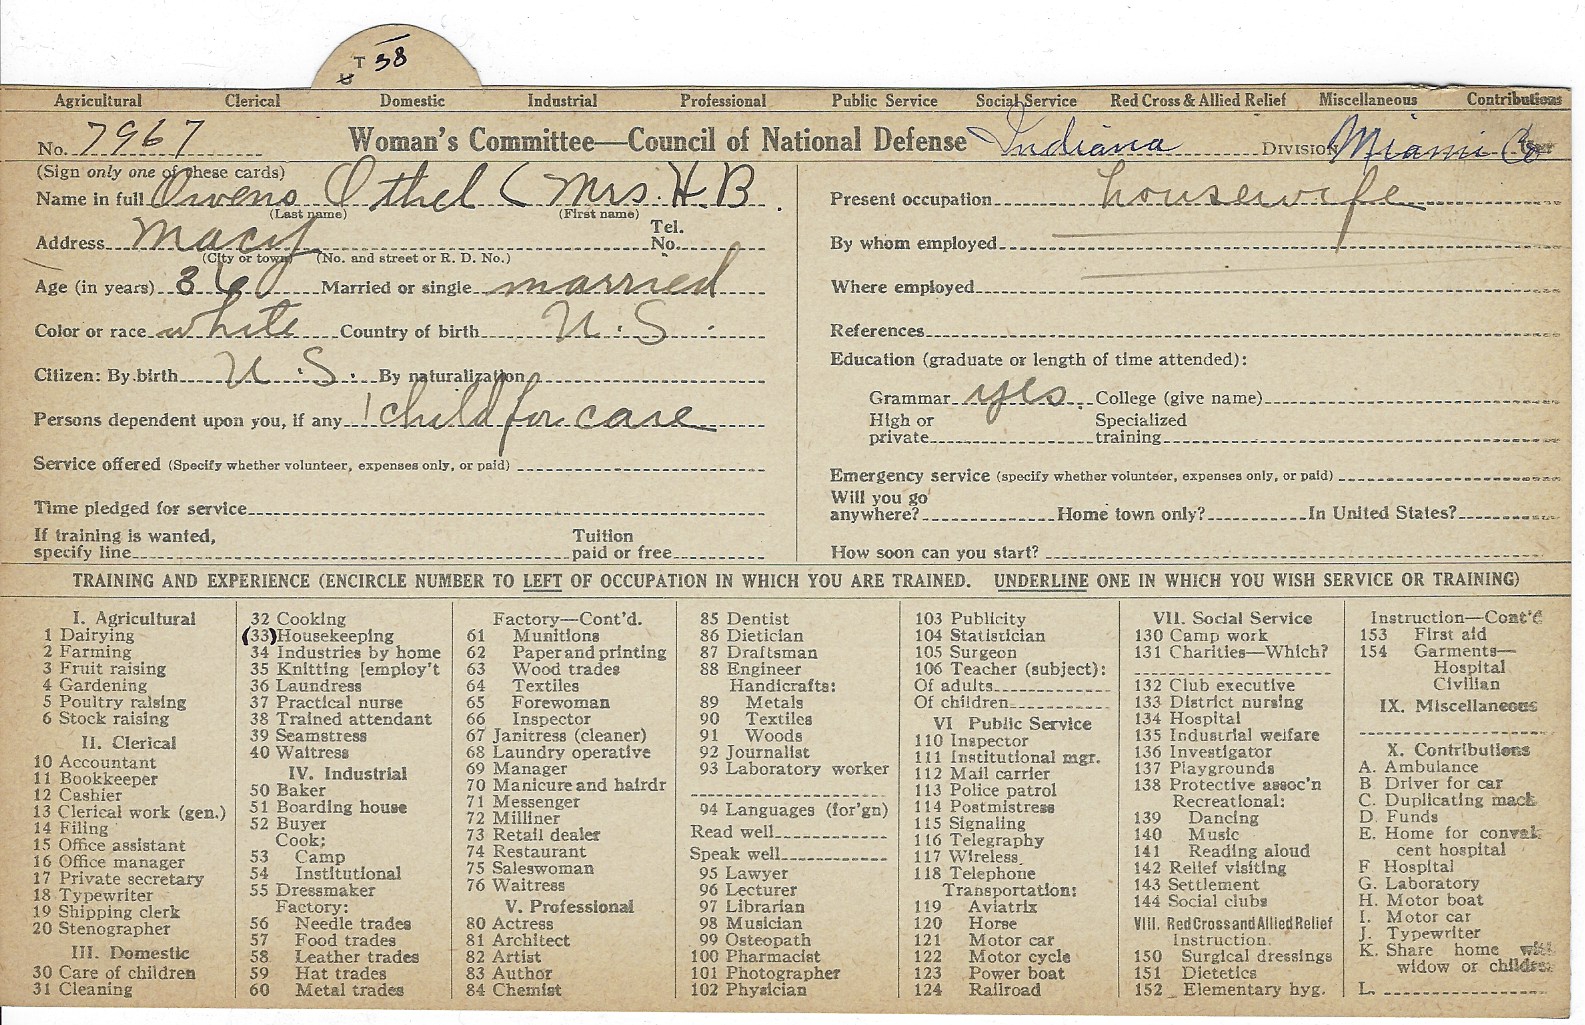 T 38
Agricultural Clerical Domestic Industrial Professional Public Service Social Service Red Cross & Allied Relief Miscellaneous Contributions
No. 7967 Woman's Committee—Council of National Defense Indiana Division Miami Co
(Sign only one of these cards)
Name in full Owens Othel (Mrs. H. B.
(Last name) (First name)
Address Macy Tel. No.
(City or town) (No. and street or R. D. No.)
Age (in years) 36 Married or single married
Color or race white Country of birth U. S.
Citizen: By birth U. S. By naturalization
Persons dependent upon you, if any 1 child for care
Service offered (Specify whether volunteer, expenses only, or paid)
Time pledged for service
If training is wanted, specify line Tuition paid or free
Present occupation housewife
By whom employed
Where employed
References
Education (graduate or length of time attended):
Grammar yes. College (give name)
High or private Specialized training
Emergency service (specify whether volunteer, expenses only, or paid)
Will you go anywhere? Home town only? In United States?
How soon can you start?
TRAINING AND EXPERIENCE (ENCIRCLE NUMBER TO LEFT OF OCCUPATION IN WHICH YOU ARE TRAINED. UNDERLINE ONE IN WHICH YOU WISH SERVICE OR TRAINING)
I. Agricultural
1 Dairying
2 Farming
3 Fruit raising
4 Gardening
5 Poultry raising
6 Stock raising
II. Clerical
10 Accountant
11 Bookkeeper
12 Cashier
13 Clerical work (gen.)
14 Filing
15 Office assistant
16 Office manager
17 Private secretary
18 Typewriter
19 Shipping clerk
20 Stenographer
III. Domestic
30 Care of children
31 Cleaning
32 Cooking
(33) Housekeeping
34 Industries by home
35 Knitting [employ't
36 Laundress
37 Practical nurse
38 Trained attendant
39 Seamstress
40 Waitress
IV. Industrial
50 Baker
51 Boarding house
52 Buyer
Cook;
53 Camp
54 Institutional
55 Dressmaker
Factory:
56 Needle trades
57 Food trades
58 Leather trades
59 Hat trades
60 Metal trades
Factory—Cont'd.
61 Munitions
62 Paper and printing
63 Wood trades
64 Textiles
65 Forewoman
66 Inspector
67 Janitress (cleaner)
68 Laundry operative
69 Manager
70 Manicure and hairdr
71 Messenger
72 Milliner
73 Retail dealer
74 Restaurant
75 Saleswoman
76 Waitress
V. Professional
80 Actress
81 Architect
82 Artist
83 Author
84 Chemist
85 Dentist
86 Dietician
87 Draftsman
88 Engineer
Handicrafts:
89 Metals
90 Textiles
91 Woods
92 Journalist
93 Laboratory worker
94 Languages (for'gn)
Read well
Speak well
95 Lawyer
96 Lecturer
97 Librarian
98 Musician
99 Osteopath
100 Pharmacist
101 Photographer
102 Physician
103 Publicity
104 Statistician
105 Surgeon
106 Teacher (subject):
Of adults
Of children
VI Public Service
110 Inspector
111 Institutional mgr.
112 Mail carrier
113 Police patrol
114 Postmistress
115 Signaling
116 Telegraphy
117 Wireless
118 Telephone
Transportation:
119 Aviatrix
120 Horse
121 Motor car
122 Motor cycle
123 Power boat
124 Railroad
VII. Social Service
130 Camp work
131 Charities—Which?
132 Club executive
133 District nursing
134 Hospital
135 Industrial welfare
136 Investigator
137 Playgrounds
138 Protective assoc'n
Recreational:
139 Dancing
140 Music
141 Reading aloud
142 Relief visiting
143 Settlement
144 Social clubs
VIII. Red Cross and Allied Relief
Instruction.
150 Surgical dressings
151 Dietetics
152 Elementary hyg.
Instruction—Cont'd
153 First aid
154 Garments—
Hospital
Civilian
IX. Miscellaneous
X. Contributions
A. Ambulance
B Driver for car
C. Duplicating mach
D. Funds
E. Home for conval
cent hospital
F Hospital
G. Laboratory
H. Motor boat
I. Motor car
J. Typewriter
K. Share home with
widow or children
L.